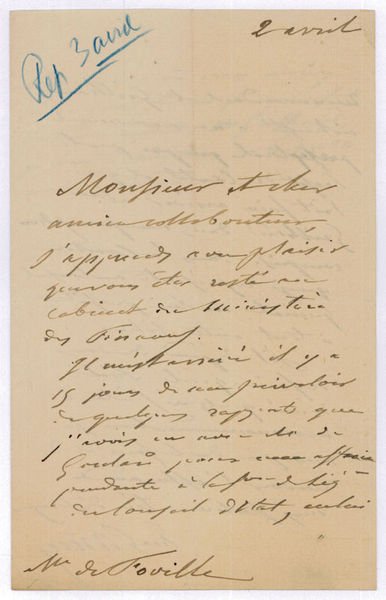 2 avril
Rep 3 avril
Monsieur et cher
ancien collaborateur,
J'apprends avec plaisir
que vous êtes resté au
cabinet du Ministère
des Finances.
Il m'est arrivé il y a
15 jours de me prévaloir
de quelques rapports que
j'avais eu avec de
pour une affaire
pendante à la de Lég
du Conseil d'Etat,
Mr de Foville